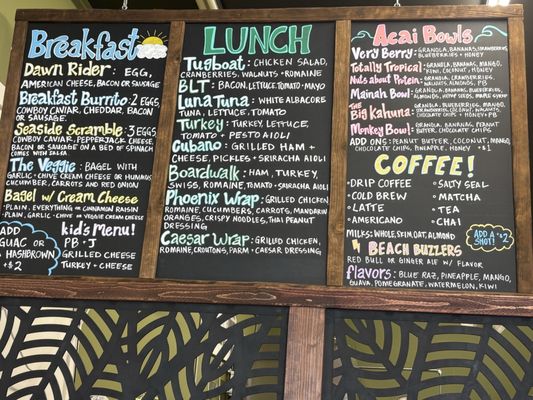 Breakfast
Dawn Rider: EGG,
AMERICAN CHEESE, BACON OR SAUSAGE
Breakfast Burrito: 2 EGGS,
COWBOY CAVIAR, CHEDDAR, BACON
OR SAUSAGE.
Seaside Scramble: 3 EGGS
COWBOY CAVIAR, PEPPERJACK CHEESE,
BACON OR SAUSAGE ON A BED OF SPINACH
COMES WITH SALSA
The Veggie: BAGEL WITH
GARLIC + CHIVE CREAM CHEESE OR HUMMUS
CUCUMBER, CARROTS AND RED ONION
Bagel w/ Cream Cheese
- PLAIN, EVERYTHING OR CINNAMON RAISIN
- PLAIN, GARLIC + CHIVE OR VEGGIE CREAM CHEESE
ADD
GUAC OR
HASHBROWN
+$2
kid's Menu!
PB + J
GRILLED CHEESE
TURKEY + CHEESE
LUNCH
Tugboat: CHICKEN SALAD,
CRANBERRIES, WALNUTS + ROMAINE
BLT: BACON, LETTUCE, TOMATO + MAYO
Luna Tuna: WHITE ALBACORE
TUNA, LETTUCE, TOMATO
Turkey: TURKEY, LETTUCE,
TOMATO + PESTO AIOLI
Cubano: GRILLED HAM +
CHEESE, PICKLES + SRIRACHA AIOLI
Boardwalk: HAM, TURKEY,
SWISS, ROMAINE, TOMATO + SRIRACHA AIOLI
Phoenix Wrap: GRILLED CHICKEN
ROMAINE, CUCUMBERS, CARROTS, MANDARIN
ORANGES, CRISPY NOODLES, THAI PEANUT
DRESSING
Caesar Wrap: GRILLED CHICKEN,
ROMAINE, CROUTONS, PARM + CAESAR DRESSING
Acai Bowls
Very Berry: GRANOLA, BANANAS,
BLUEBERRIES + HONEY
Totally Tropical: GRANOLA, BANANAS, MANGO,
KIWI, COCONUT, HONEY
Nuts about Protein: GRANOLA, CRANBERRIES
WALNUTS, PB
Mainah Bowl: GRANOLA, BANANAS, BLUEBERRIES,
ALMONDS, HEMP SEEDS, MAPLE SYRUP
The Big Kahuna: GRANOLA, BLUEBERRIES, MANGO,
STRAWBERRIES, COCONUT, WALNUTS,
CHOCOLATE CHIPS + HONEY + PB
Monkey Bowl: GRANOLA, BANANAS, PEANUT
BUTTER, CHOCOLATE CHIPS
ADD ONS: PEANUT BUTTER, COCONUT, MANGO,
CHOCOLATE CHIPS, PINEAPPLE, HONEY +$1
COFFEE!
• DRIP COFFEE
• COLD BREW
• LATTE
• AMERICANO
• SALTY SEAL
• MATCHA
• TEA
• CHAI
MILKS: WHOLE, SKIM, OAT, ALMOND
ADD A
SHOT! +$2
BEACH BUZZERS
RED BULL OR GINGER ALE W/ FLAVOR
flavors: BLUE RAZ, PINEAPPLE, MANGO,
GUAVA, POMEGRANATE, WATERMELON, KIWI